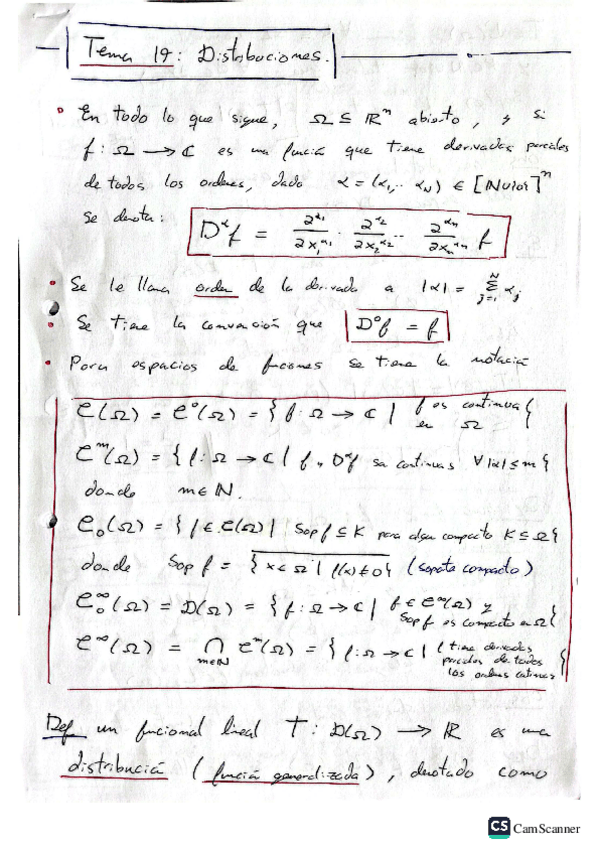 Tema 19: Distribuciones.
• En todo lo que sigue, Ω ⊆ ℝⁿ abierto, y si
f: Ω → ℂ es una función que tiene derivadas parciales
de todos los ordenes, dado α = (α₁,... α_N) ∈ [ℕ∪{0}]ⁿ
se denota: D^α f = ∂^α₁/∂x₁^α₁ · ∂^α₂/∂x₂^α₂ ... ∂^αₙ/∂xₙ^αₙ f
• Se le llama orden de la derivada a |α| = Σ_{j=1}^{N} α_j
• Se tiene la convención que D⁰f = f
• Para espacios de funciones se tiene la notación
C(Ω) = C⁰(Ω) = {f: Ω → ℂ | f es continua en Ω}
C^m(Ω) = {f: Ω → ℂ | f, D^α f son continuas ∀ |α| ≤ m}
donde m ∈ ℕ.
C₀(Ω) = {f ∈ C(Ω) | Sop f ⊆ K para algún compacto K ⊆ Ω}
donde Sop f = \overline{{x ∈ Ω | f(x) ≠ 0}} (soporte compacto)
C₀^∞(Ω) = D(Ω) = {f: Ω → ℂ | f ∈ C^∞(Ω) y Sop f es compacto en Ω}
C^∞(Ω) = ∩_{m∈ℕ} C^m(Ω) = {f: Ω → ℂ | f tiene derivadas parciales de todos los ordenes continuas}
Def un funcional lineal T: D(Ω) → ℝ es una
distribución (función generalizada), denotado como
CS CamScanner